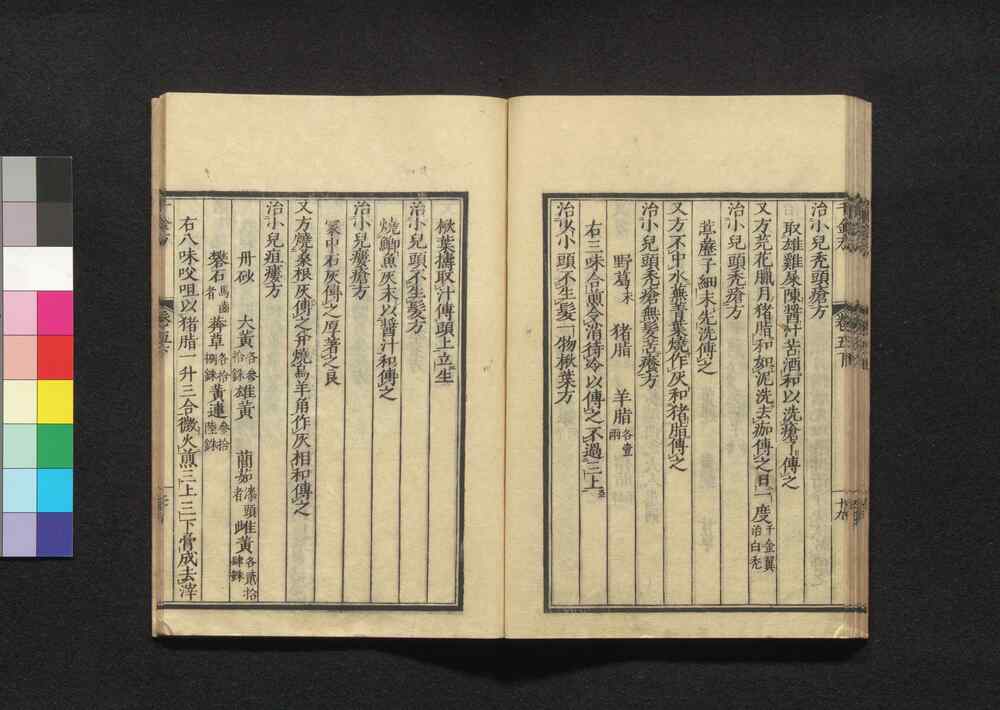 治小兒禿頭瘡方
取雄雞屎陳醬汁苦酒和以洗瘡了傅之
又方芫花臘月猪脂和如泥洗去痂傅之日一度千金翼治白禿
治小兒頭禿瘡方
葶藶子細末先洗傅之
又方不中水蕪菁葉燒作灰和猪脂傅之
治小兒頭禿瘡無髮苦癢方
野葛末 猪脂 羊脂各壹兩
右三味合煎令消待冷以傅之不過三上
治小兒頭不生髮一物楸葉方
楸葉擣取汁傅頭上立生
治小兒頭不生髮方
燒鯽魚灰末以醬汁和傅之
治小兒瘻瘡方
冢中石灰傅之厚著之良
又方燒桑根灰傅之并燒烏羊角作灰相和傅之
治小兒疽瘻方
丹砂 大黃各參拾銖 雄黃 䕡茹漆頭者 雌黃各貳拾肆銖
礬石馬齒者 莽草各拾捌銖 黃連參拾陸銖
右八味㕮咀以猪脂一升三合微火煎三上三下膏成去滓